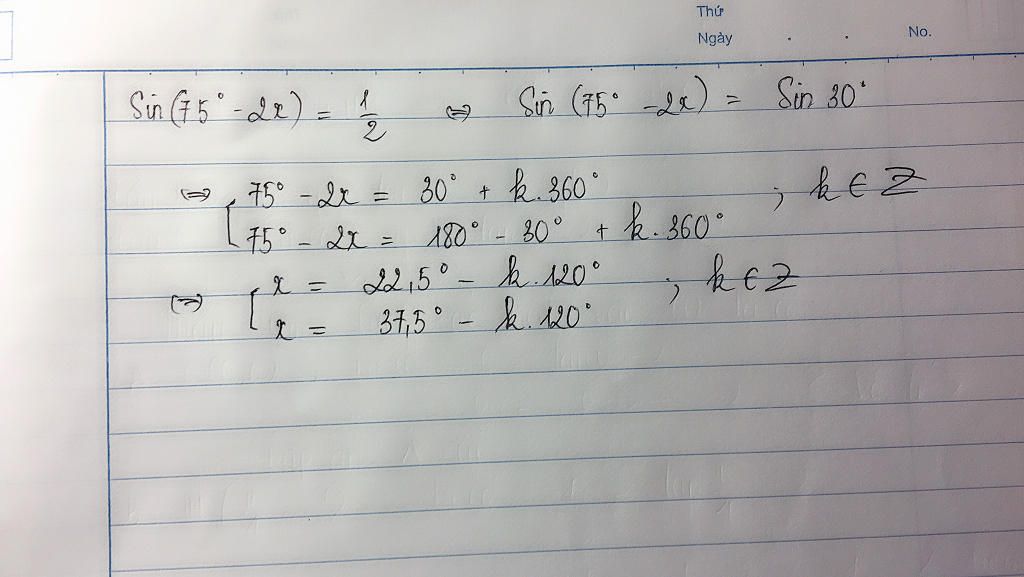 Thứ
Ngày . . No.
Sin (75° - 2x) = 1/2 ⇔ Sin (75° - 2x) = Sin 30°
⇔ [ 75° - 2x = 30° + k.360° ; k ∈ Z
75° - 2x = 180° - 30° + k.360°
⇔ [ x = 22,5° - k.120° ; k ∈ Z
x = 37,5° - k.120°